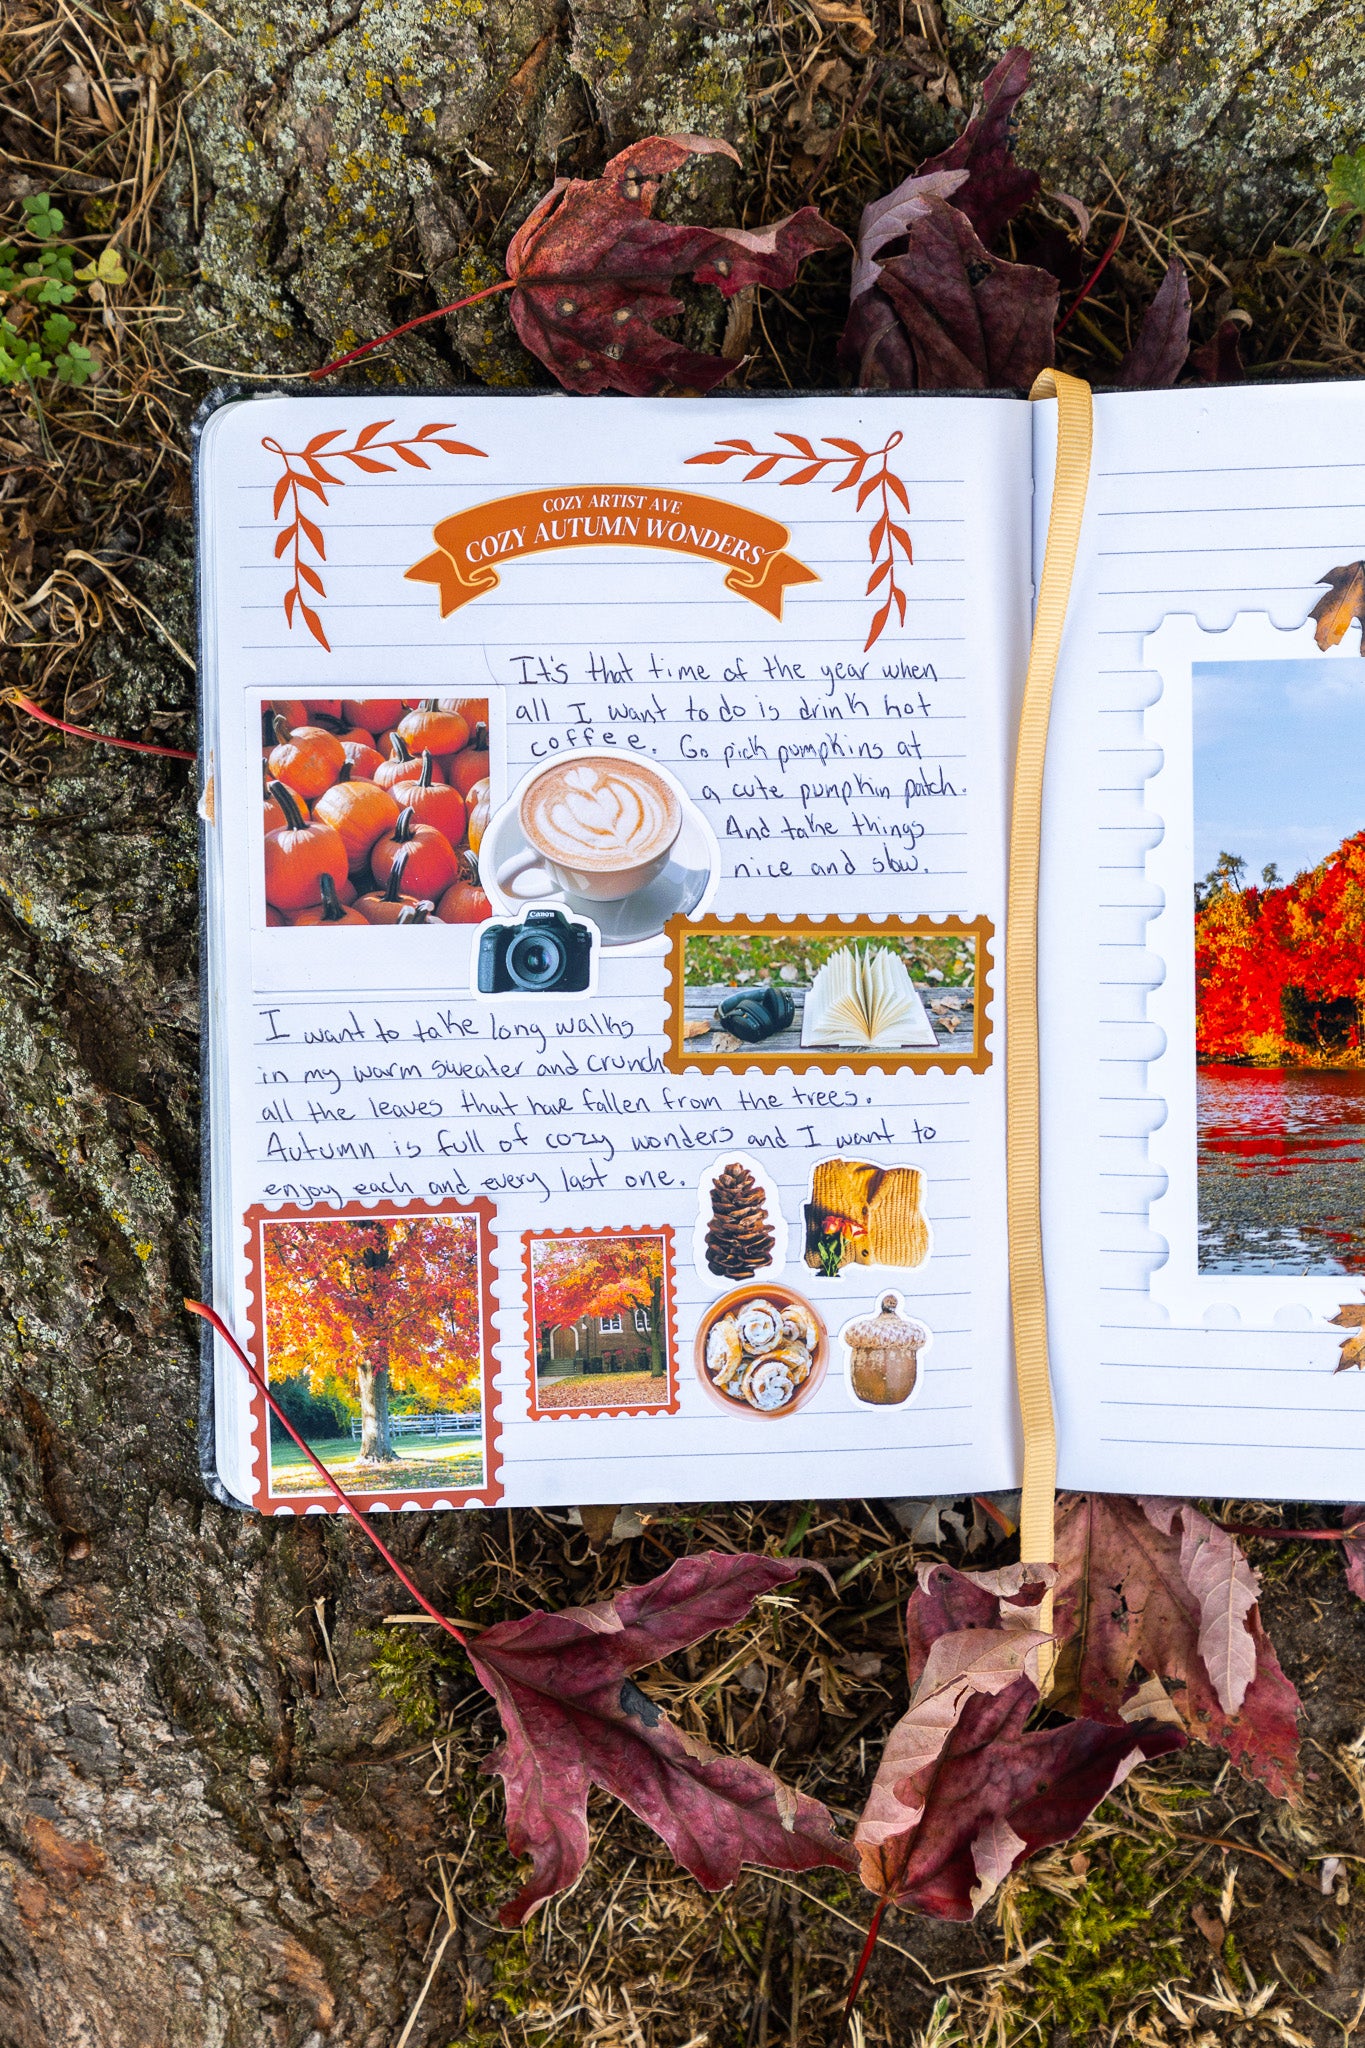 COZY ARTIST AVE
COZY AUTUMN WONDERS
It's that time of the year when
all I want to do is drink hot
coffee. Go pick pumpkins at
a cute pumpkin patch.
And take things
nice and slow.
Canon
I want to take long walks
in my warm sweater and crunch
all the leaves that have fallen from the trees.
Autumn is full of cozy wonders and I want to
enjoy each and every last one.